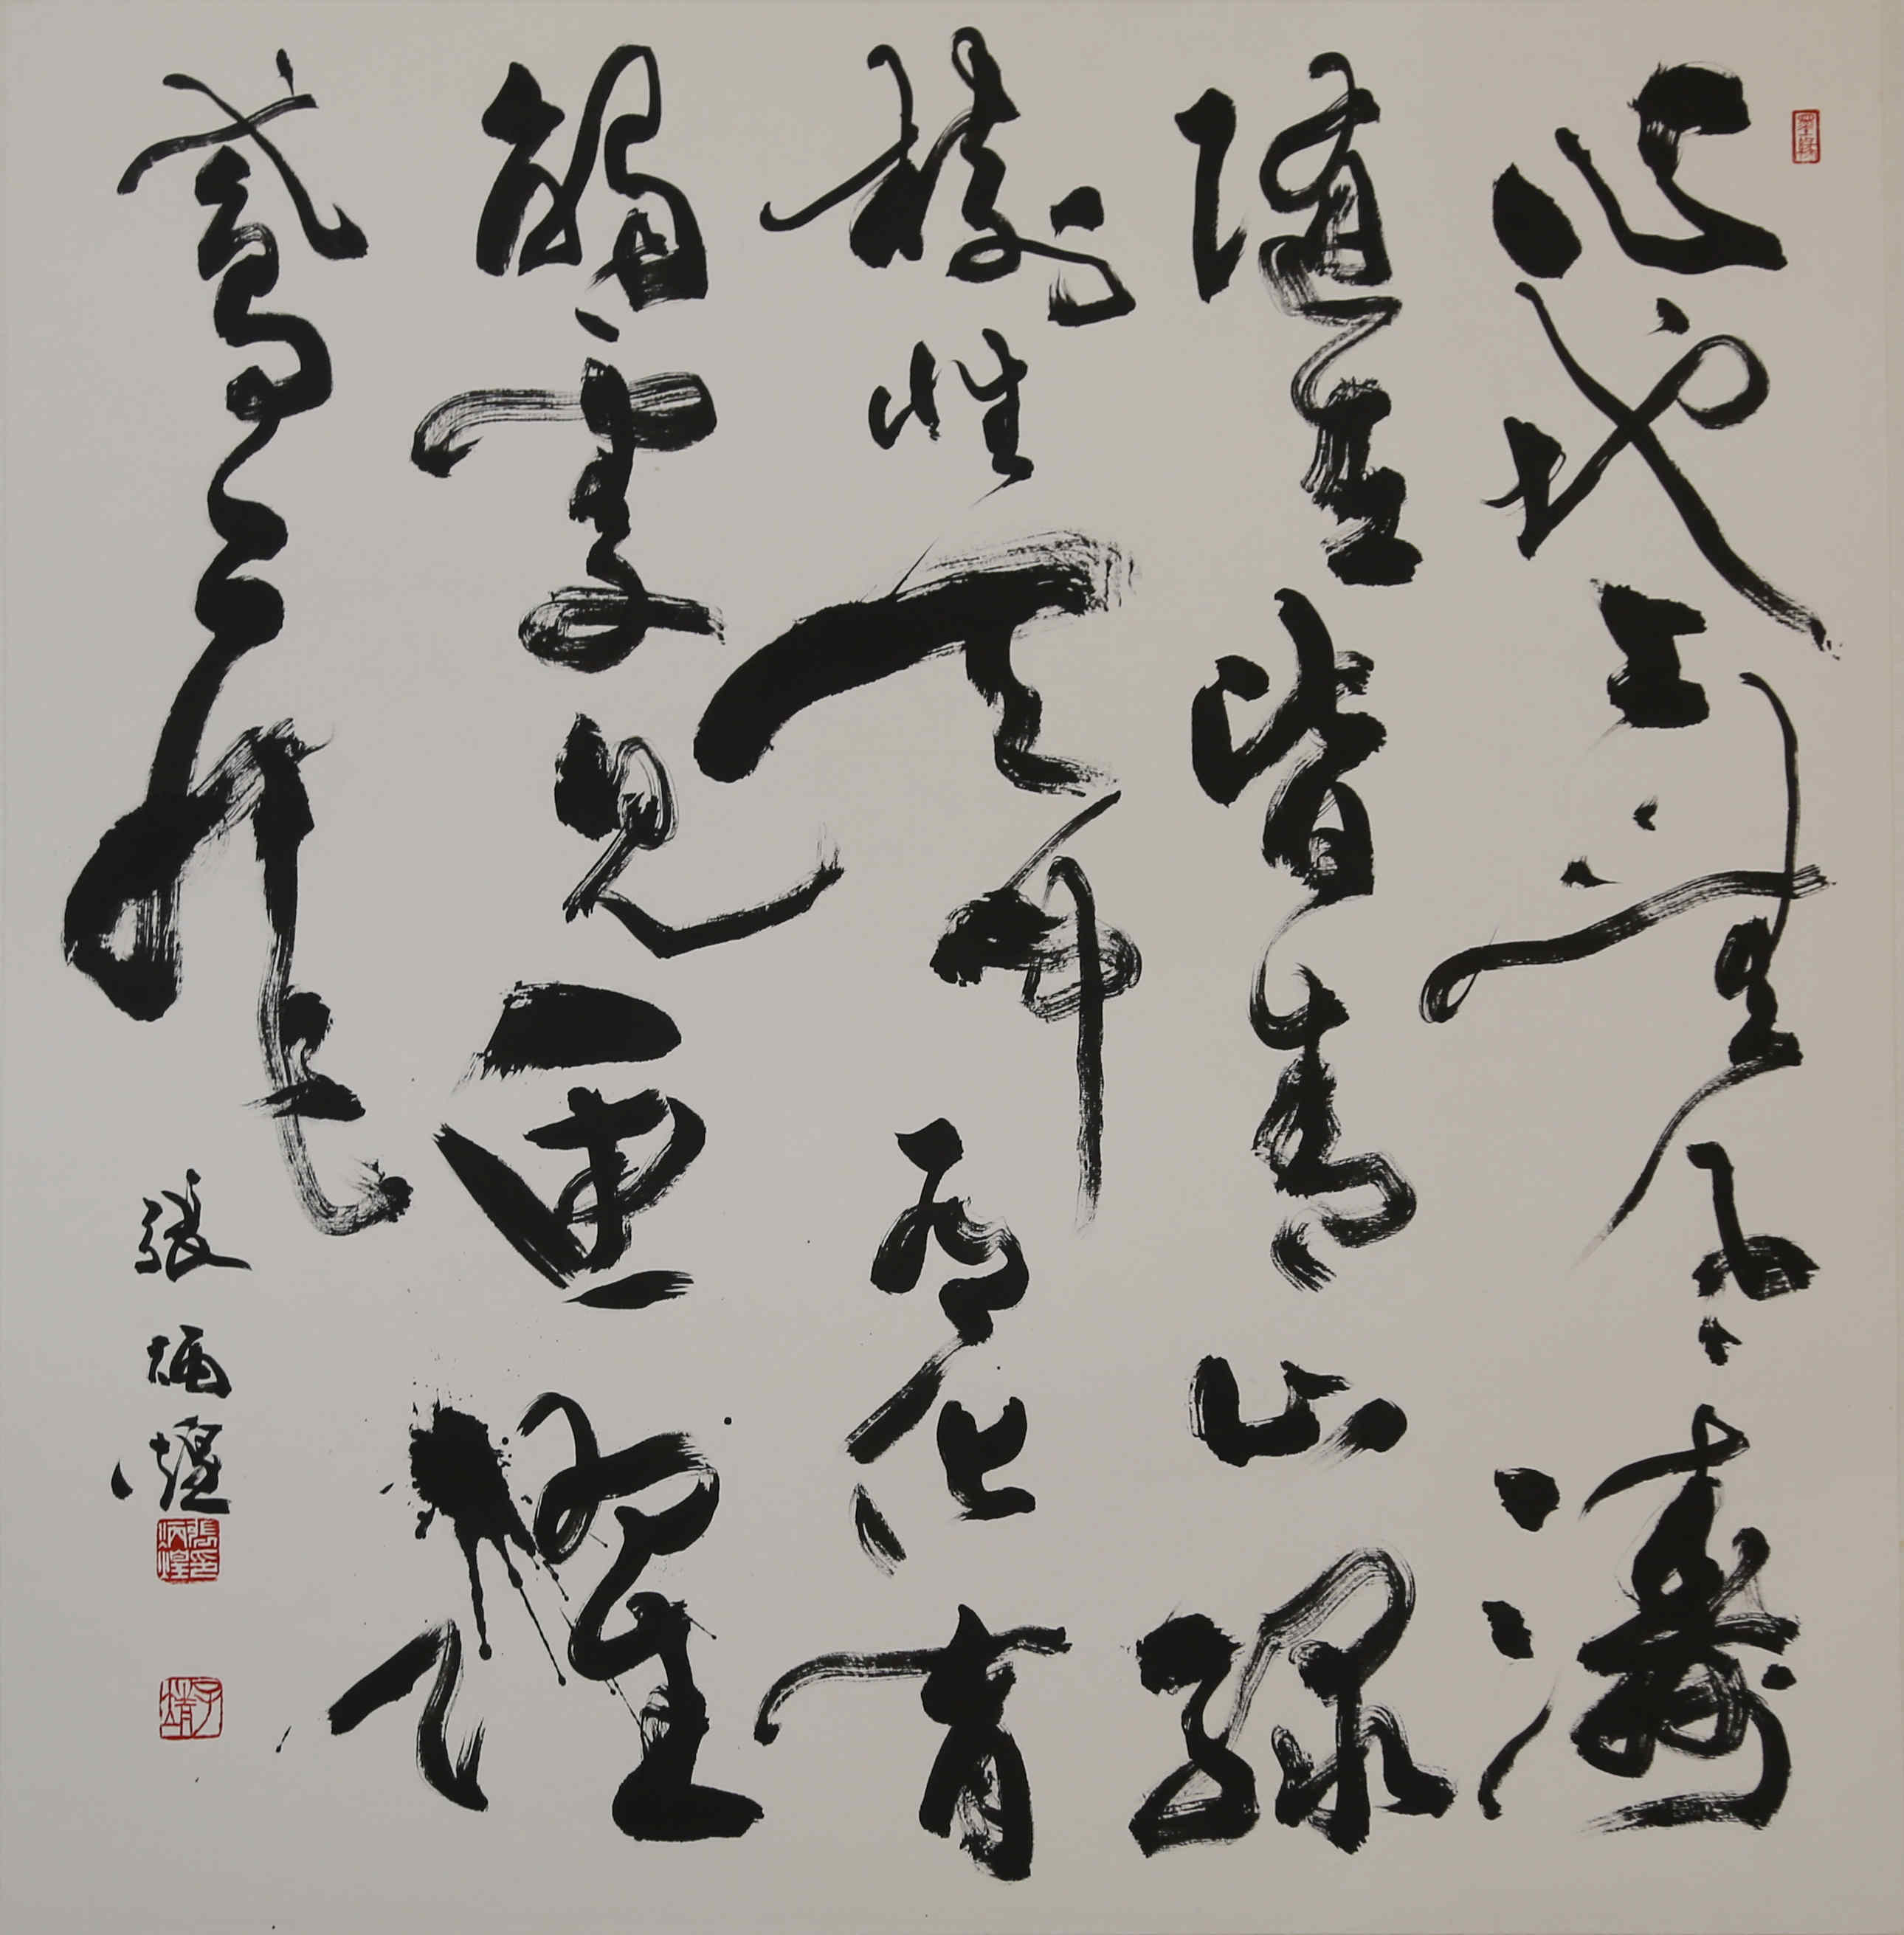 心地上無風濤
隨在皆青山綠
樹性天中有化育
觸處見魚躍
鳶飛
張炳煌
張炳煌印